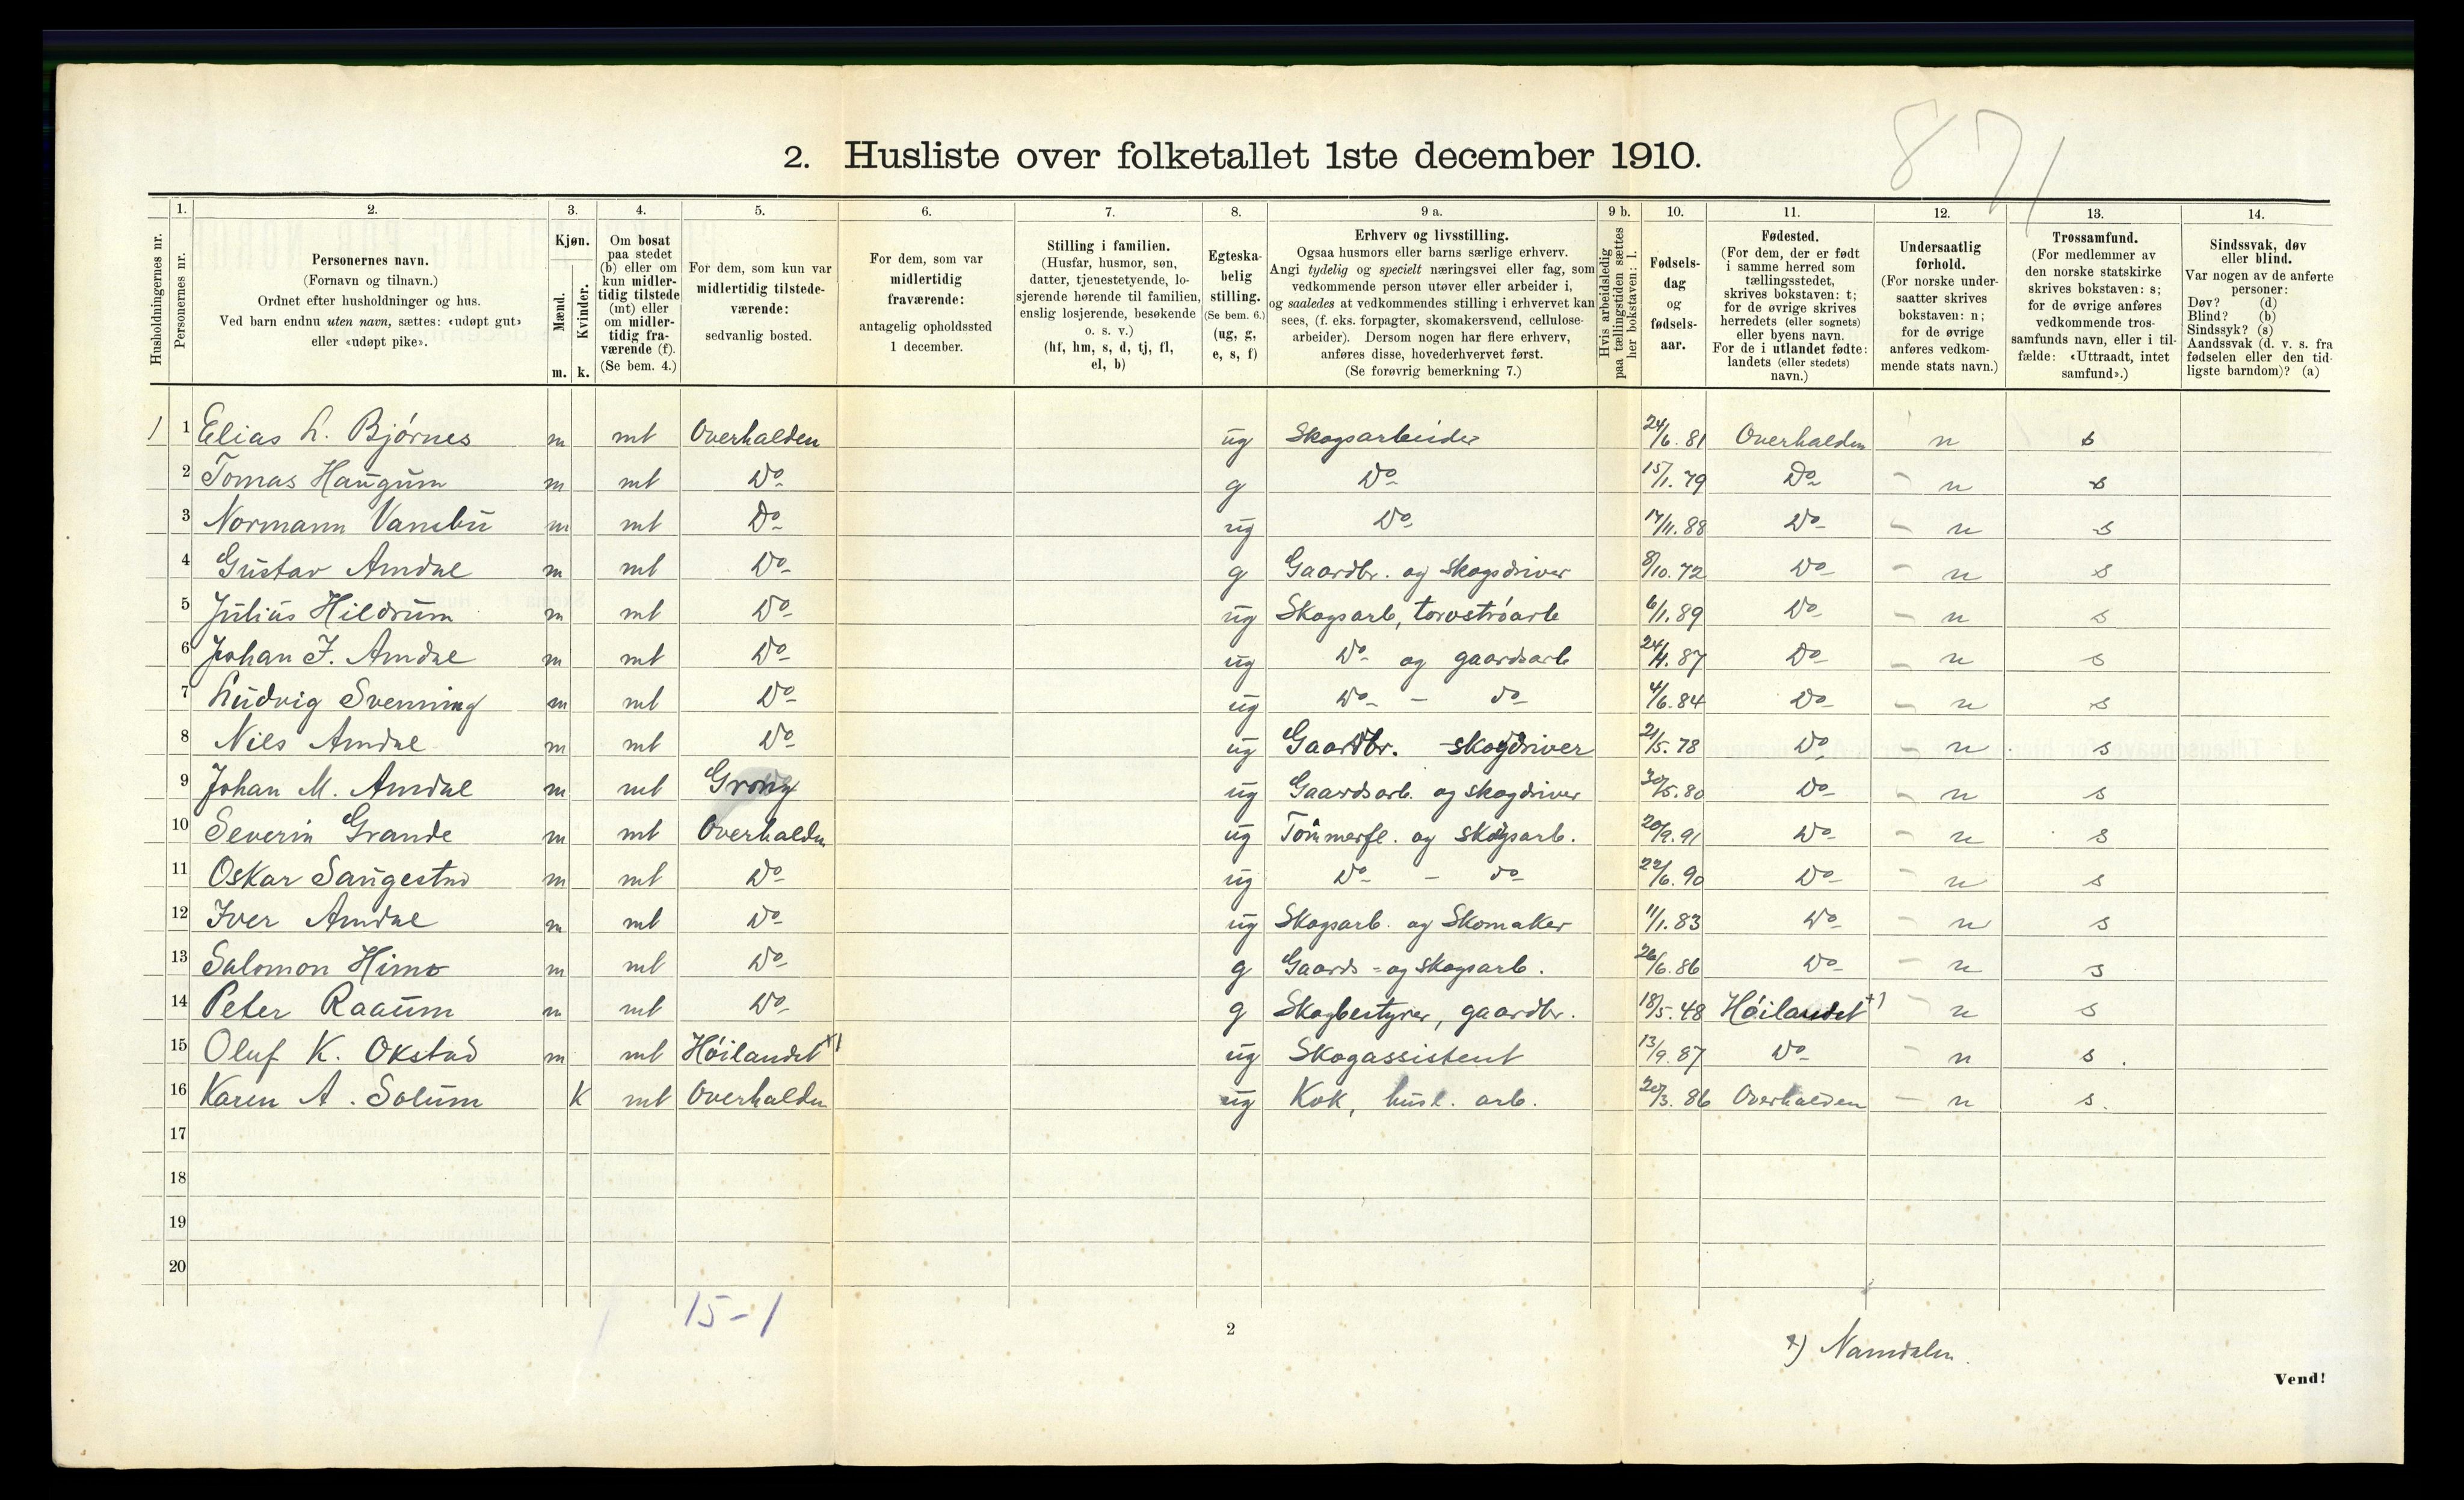 871
2. Husliste over folketallet 1ste december 1910.
1. 2. 3. 4. 5. 6. 7. 8. 9 a. 9 b. 10. 11. 12. 13. 14.
Husholdningernes nr.
Personernes nr.
Personernes navn.
(Fornavn og tilnavn.)
Ordnet efter husholdninger og hus.
Ved barn endnu uten navn, sættes: «udøpt gut»
eller «udøpt pike».
Kjøn.
Mænd.
Kvinder.
m. k.
Om bosat
paa stedet
(b) eller om
kun midler-
tidig tilstede
(mt) eller
om midler-
tidig fra-
værende (f).
(Se bem. 4.)
For dem, som kun var
midlertidig tilstede-
værende:
sedvanlig bosted.
For dem, som var
midlertidig
fraværende:
antagelig opholdssted
1 december.
Stilling i familien.
(Husfar, husmor, søn,
datter, tjenestetyende, lo-
sjerende hørende til familien,
enslig losjerende, besøkende
o. s. v.)
(hf, hm, s, d, tj, fl,
el, b)
Egteska-
belig
stilling.
(Se bem. 6.)
(ug, g,
e, s, f)
Erhverv og livsstilling.
Ogsaa husmors eller barns særlige erhverv.
Angi tydelig og specielt næringsvei eller fag, som
vedkommende person utøver eller arbeider i,
og saaledes at vedkommendes stilling i erhvervet kan
sees, (f. eks. forpagter, skomakersvend, cellulose-
arbeider). Dersom nogen har flere erhverv,
anføres disse, hovederhvervet først.
(Se forøvrig bemerkning 7.)
Hvis arbeidsledig
paa tællingstiden sættes
her bokstaven: l.
Fødsels-
dag
og
fødsels-
aar.
Fødested.
(For dem, der er født
i samme herred som
tællingsstedet,
skrives bokstaven: t;
for de øvrige skrives
herredets (eller sognets)
eller byens navn.
For de i utlandet fødte:
landets (eller stedets)
navn.)
Undersaatlig
forhold.
(For norske under-
saatter skrives
bokstaven: n;
for de øvrige
anføres vedkom-
mende stats navn.)
Trossamfund.
(For medlemmer av
den norske statskirke
skrives bokstaven: s;
for de øvrige anføres
vedkommende tros-
samfunds navn, eller i til-
fælde: «Uttraadt, intet
samfund».)
Sindssvak, døv
eller blind.
Var nogen av de anførte
personer:
Døv? (d)
Blind? (b)
Sindssyk? (s)
Aandssvak (d. v. s. fra
fødselen eller den tid-
ligste barndom)? (a)
1 1 Elias L. Bjørnes m mt Overhalden ug Skogsarbeider 24/6.81 Overhalden n s
2 Tomas Haugum m mt Do g Do 15/1.79 Do - n s
3 Normann Vansbu m mt Do ug Do 17/11.88 Do - n s
4 Gustav Amdal m mt Do g Gaardbr. og skogsdriver 8/10.72 Do - n s
5 Julius Hildrum m mt Do ug Skogsarb, torvstrøarb 6/1.89 Do - n s
6 Johan J. Amdal m mt Do ug Do og gaardsarb 24/4.87 Do - n s
7 Ludvig Svenning m mt Do ug Do - do 4/6.84 Do - n s
8 Nils Amdal m mt Do ug Gaardbr. - skogdriver 21/5.78 Do - n s
9 Johan M. Amdal m mt Grong ug Gaardsarb. og skogdriver 30/5.80 Do - n s
10 Severin Grande m mt Overhalden ug Tømmerfl. og skogsarb. 20/9.91 Do - n s
11 Oskar Saugestad m mt Do ug Do - do 22/6.90 Do - n s
12 Iver Amdal m mt Do ug Skogsarb. og Skomaker 11/1.83 Do - n s
13 Salomon Himo m mt Do g Gaards- og skogsarb. 26/6.86 Do - n s
14 Peter Raaum m mt Do g Skogbestyrer, gaardbr. 18/5.48 Høilandet x) - n s
15 Oluf K. Okstad m mt Høilandet x) ug Skogassistent 13/9.87 Do - n s.
16 Karen A. Solum k mt Overhalden ug Kok, husl. arb. 20/3.86 Overhalden - n s.
17
18
19
20
15-1
2
x) Namdalen.
Vend!